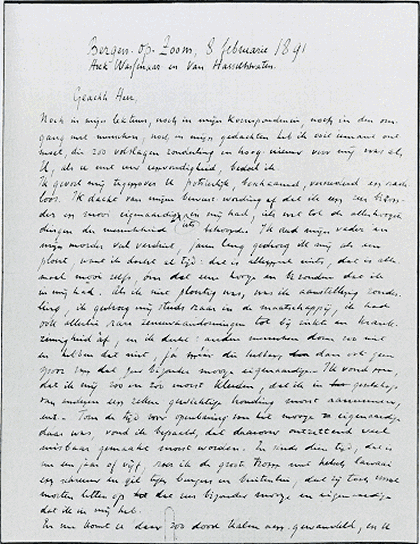 Bergen-op-Zoom, 8 februarie 1891
Hoek Wassenaar en Van Hasseltstraten.
Geachte Heer,
Noch in mijn lektuur, noch in mijn korrespondensie, noch in den om-
gang met menschen, noch in mijn gedachten heb ik ooit iemand ont-
moet, die zoo volslagen zonderling en hoog-nieuw voor mij was als
U, als U met uw eenvoudigheid, bedoel ik.
Ik gevoel mij tegenover U potsierlijk, beschaamd, verwonderd en rade-
loos. Ik dacht van mijn bewust-wording af dat ik iets zeer bizon-
ders en moois eigenaardigs in mij had, iets wat tot de allerhoogste
dingen der menschheid behoorde. Ik heb mijn vader en
mijn moeder veel verdriet, jaren lang gedroeg ik mij als een
ploert, want ik dacht al tijd: dat is allemaal niets, dat is alle-
maal mooi zelfs, om dat ene hooge en bizondere dat ik
in mij had. Als ik niet ploertig was, was ik aanstellerig zonder-
ling, ik gedroeg mij steeds raar in de maatschappij, ik had
ook allerlei rare zenuwaandoeningen tot bij enkele en krank-
zinnigheid af, en ik dacht: andere menschen doen zoo niet
en hebben dat niet, ja maar die hebben dan ook geen
spoor van dat zeer bizonder mooye eigenaardige. Ik vond ook,
dat ik mij zoo en zoo moest kleeden, dat ik in gezelschap
van anderen een zekere gewichtige houding moest aannemen,
enz. – Toen de tijd voor openbaring van het mooye eigenaardige
daar was, vond ik bepaald, dat daarover ontzettend veel
misbaar gemaakt moest worden. En sinds dien tijd, dat is
nu een jaar of vijf, ben ik de groote trom met helsch lawaai
en schreeuw en gil tegen burgers en buitenlui, dat zij toch vooral
moeten letten op dat zeer bizonder mooye en eigenaardige
dat ik in mij heb.
En nu komt U daar zoo dood kalm aan-gewandeld, en U